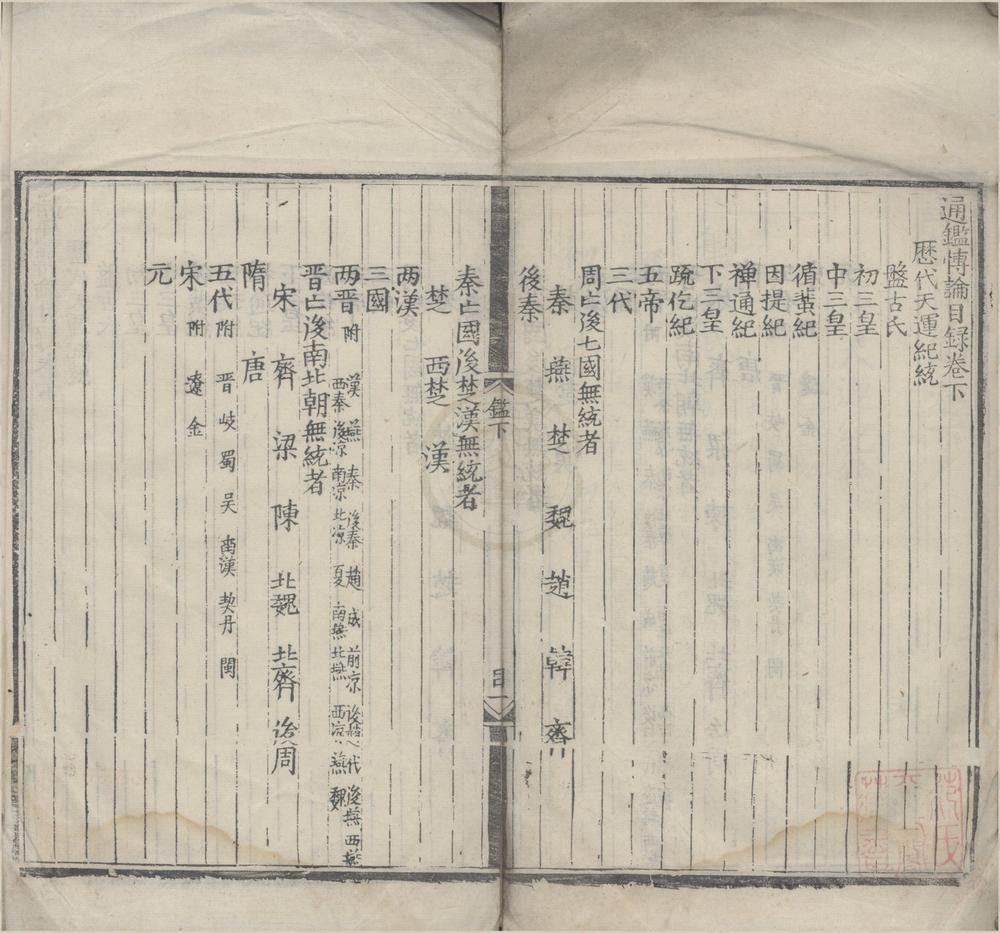 通鑑博論目録卷下
歷代天運紀統
盤古氏
初三皇
中三皇
循蜚紀
因提紀
禅通紀
下三皇
䟽仡紀
五帝
三代
周亡後七國無統者
秦 燕 楚 魏 趙 韓 齊
後秦
鑑下
目一
秦亡國後楚漢無統者
楚 西楚 漢
两漢
三國
两晋 附 漢 燕 秦 後秦 趙 成 前凉 後趙 代 後燕 西燕
西秦 後凉 南凉 北凉 夏 南燕 北燕 西凉 燕 魏
晋亡後南北朝無統者
宋 齊 梁 陳 北魏 北齊 後周
隋 唐
五代 附 晋 岐 蜀 吴 南漢 契丹 閩
宋 附 遼 金
元